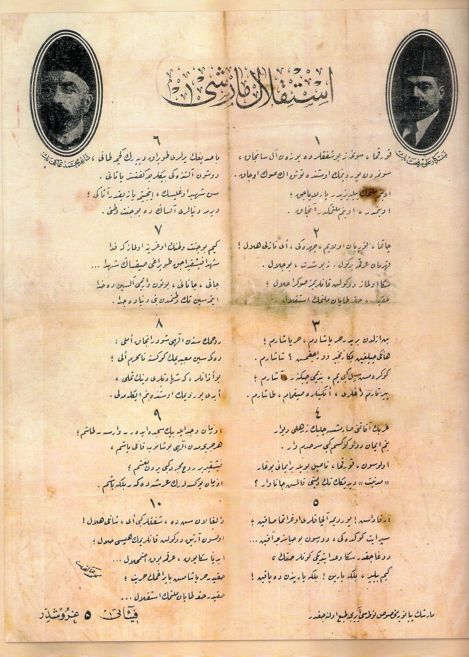 استقلال مارشی
بسته‌كار علی رفعت بك
شاعر محمد عاكف بك
١
قورقما، سونمز بو شفقلرده یوزن آل سانجاق،
سونمه‌دن یوردیمك اوستنده توتن اك صوك اوجاق.
او بنم ملتمك ییلدیزیدر پارلایاجق؛
او بنمدر، او بنم ملتمكدر آنجاق.
٢
چاتما، قوربان اولایم، چهره‌كی، ای نازلی هلال!
قهرمان عرقمه بر كول. نه بو شدت، بو جلال؟
سكا اولماز دوكولن قانلریمز صوكرا حلال؛
حقیدر، حقه طاپان ملتمك استقلال.
٣
بن ازلدن بریدر حر یاشادم، حر یاشارم؛
هانكی چیلغین بكا زنجیر ووراجقمش؟ شاشارم.
كوكره‌مش سیل كبی یم، بندیمی چیكنر، آشارم؛
ییرتارم طاغلری، انكینلره صیغمام، طاشارم.
٤
غربك آفاقنی صارمشسه چلیك زرهلی دیوار
بنم ایمان دولو كوكسم كبی سرحدم وار.
اولوسون، قورقما، ناصل بویله بر ایمانی بوغار
«مدنیت» دیدیكك تك دیشی قالمش جاناوار؟
٥
آرقاداش! یوردیمه آلچاقلری اوغراتما صاقین؛
سپر ایت كوكده‌كی، دورسون بو حیاسزجه آقین...
دوغاجقدر سكا وعد ایتدیكی كونلر حقك،
كیم بیلیر، بلكه یارین! بلكه یاریندن ده یاقین!
٦
باصدیغك یرلری طوپراق دیه‌رك كچمه طانی،
دوشون آلتنده‌كی بیكلرجه كفنسز یاتانی.
سن شهید اوغلیسك، اینجیتمه یازیقدر آتاكی؛
ویرمه دنیالری آلسه‌ك ده بو جنت وطنی.
٧
كیم بو جنت وطنك اوغرینه اولماز كه فدا
شهدا فیشقیراجق طوپراغی صیقسه‌ك شهدا...
جانی، جانانی، بوتون واریمی آلسین ده خدا
ایتمه‌سین تك وطنمدن بنی دنیاده جدا.
٨
روحمك سندن الهی شودر آنجاق املی؛
دكمه‌سین معبدیمك كوكسنه نامحرم الی؛
بو اذانلر، كه شهادتلری دینك تملی،
ابدی یوردیمك اوستنده بنم ایكله‌ملی.
٩
او زمان وجد ایله بیك سجده ایدر - وارسه - طاشم؛
هر جریحه‌مدن الهی بوشانوب قانلی یاشم،
فیشقیرر روح مجرد كبی یردن نعشم؛
او زمان یوكسله‌رك عرشه دكر بلكه باشم.
١٠
دالغالان سن ده، شفقلر كبی ای شانلی هلال!
اولسون آرتیق دوكولن قانلریمك هپسی حلال؛
ابدیا سكا یوق، عرقمه یوق اضمحلال...
حقیدر حر یاشامش بایراغمك حریت؛
حقیدر حقه طاپان ملتمك استقلال...
فیئاتی ٥ غروشدر